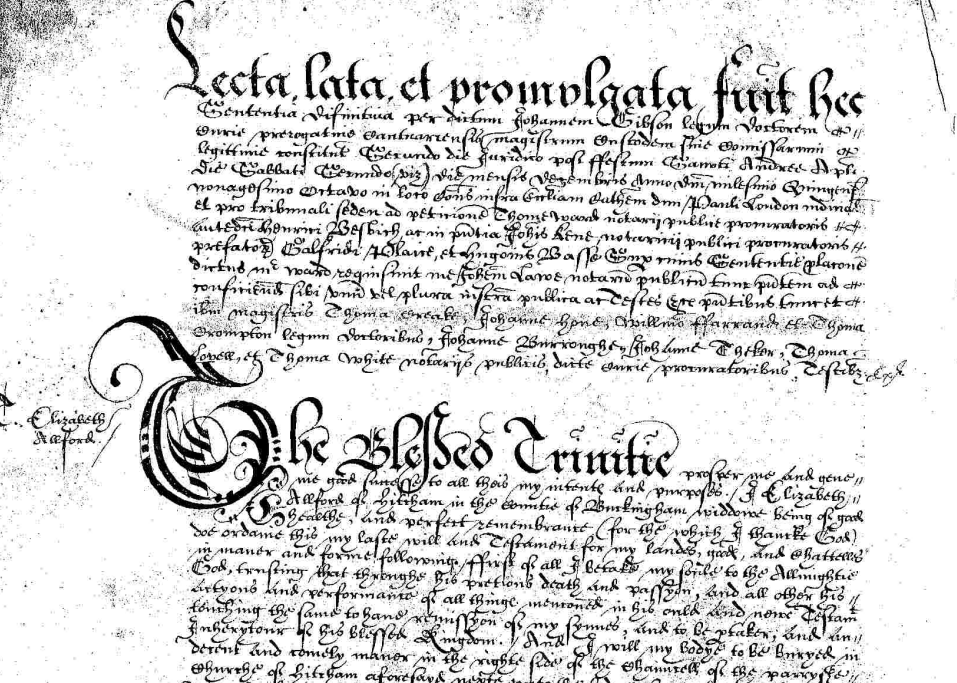 Lecta, lata, et promulgata fuit hec
Sententia difinitiva per dictum Johannem Gibson legum doctorem
Curie prerogative Cantuariensis magistrum Custodem sive Comissarium
legittime constitut Secundo die Juridico post ffestum Sancti Andree Apli
die Sabbati Secundo viz die mensis Decembris Anno Dni milesimo Quingen
nonagesimo Octavo in loco Cons infra Eccliam Cathem divi Pauli London
et pro tribunali seden ad peticione Thome Ward notarii publici procuratoris
antedci Henrici ac in pntia Johis Lene notarii publici procuratoris
prefator Galfridi et Basse Sup cuius Sententie
dictus mr Ward requisivit me Johem Lawe, notariu publicu tunc pntem ad
conficiend sibi unu vel plura instra publica ac Testes pntibus tunc et
ibm magistris Thoma Johanne hone, Willmo ffarrand et Thoma
Crompton legum doctoribus, Johanne Burroughe, Johanne Theker, Thoma
Lovell, et Thoma White notariis publicis, dicte Curie procuratoribus, Testibz
Elizabeth
Allford.
The Blessed Trinitie prosper me and geve
me good successe to all theis my intente and purposes. I Elizabeth
Allford of Hitcham in the Countie of Buckingham widdowe being of good
healthe, and perfect remembrance (for the which I thancke God)
doe ordaine this my laste will and Testament for my landes, good, and Chattelles
in maner and forme following. ffirst of all I betake my soule to the Allmightie
God, trusting that throughe his pretious death and passyon, and all other his
actyons and performance of all thinge menconed in his oulde and newe Testam
touching the same to have remissyon of my synnes, and to be ptaker, and an
Inherytour of his blessed Kingdom. And I will my bodye to be buryed in
decent and comely maner in the righte side of the Chauncell of the parryshe
Churche of Hitcham aforesayd